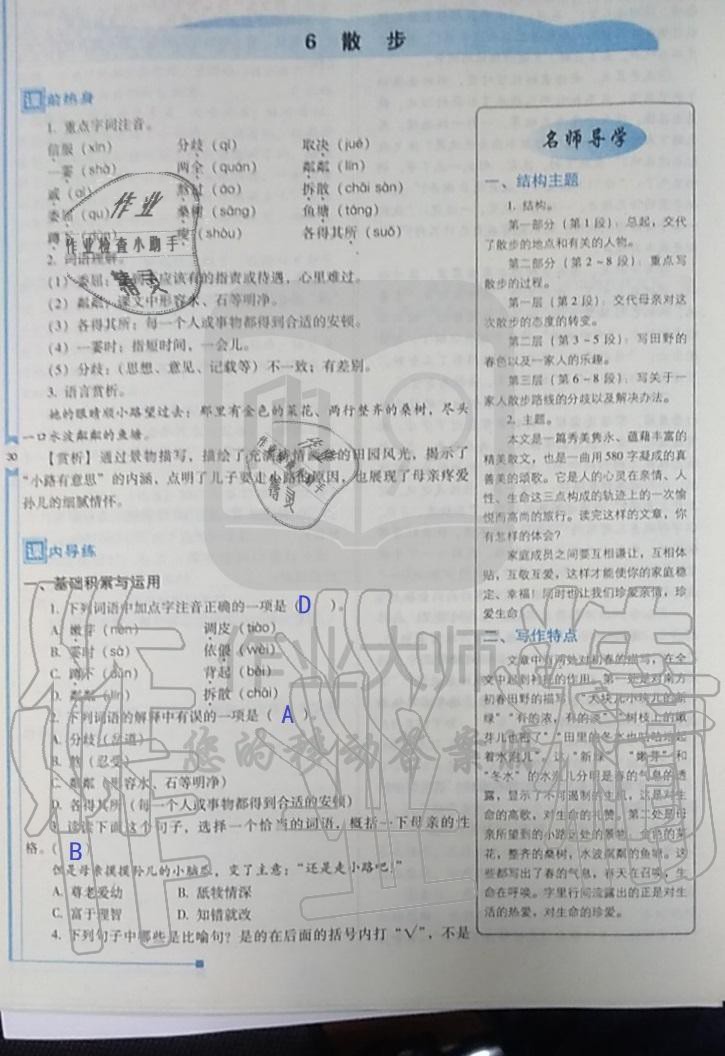 6 散 步
课前热身
1. 重点字词注音。
信服（xìn） 分歧（qí） 取决（jué）
一霎（shà） 两全（quán） 粼粼（lín）
戚（qī） 熬过（áo） 拆散（chāi sàn）
委屈（qu） 桑树（sāng） 鱼塘（táng）
蹲 瘦（shòu） 各得其所（suǒ）
2. 词语理解。
（1）委屈： 应该有的指责或待遇，心里难过。
（2）粼粼：课文中形容水、石等明净。
（3）各得其所：每一个人或事物都得到合适的安顿。
（4）一霎时：指短时间，一会儿。
（5）分歧：（思想、意见、记载等）不一致；有差别。
3. 语言赏析。
她的眼睛顺小路望过去：那里有金色的菜花、两行整齐的桑树，尽头
一口水波粼粼的鱼塘。
【赏析】通过景物描写，描绘了充满 的田园风光，揭示了
“小路有意思”的内涵，点明了儿子要走小路的原因，也展现了母亲疼爱
孙儿的细腻情怀。
30
课内导练
一、基础积累与运用
1. 下列词语中加点字注音正确的一项是（ D ）。
A. 嫩芽（nèn） 调皮（tiào）
B. 霎时（sà） 依偎（wèi）
C. 蹲下（dūn） 背起（bèi）
D. 粼粼（lín） 拆散（chāi）
2. 下列词语的解释中有误的一项是（ A ）。
A. 分歧（岔道）
B. 熬（忍受）
C. 粼粼（形容水、石等明净）
D. 各得其所（每一个人或事物都得到合适的安顿）
3. 读读下面这个句子，选择一个恰当的词语，概括一下母亲的性
格。（ B ）
但是母亲摸摸孙儿的小脑瓜，变了主意：“还是走小路吧！”
A. 尊老爱幼 B. 舐犊情深
C. 富于理智 D. 知错就改
4. 下列句子中哪些是比喻句？是的在后面的括号内打“√”，不是
名师导学
一、结构主题
1. 结构。
第一部分（第1段）：总起，交代
了散步的地点和有关的人物。
第二部分（第2~8段）：重点写
散步的过程。
第一层（第2段）：交代母亲对这
次散步的态度的转变。
第二层（第3~5段）：写田野的
春色以及一家人的乐趣。
第三层（第6~8段）：写关于一
家人散步路线的分歧以及解决办法。
2. 主题。
本文是一篇秀美隽永、蕴藉丰富的
精美散文，也是一曲用580字凝成的真
善美的颂歌。它是人的心灵在亲情、人
性、生命这三点构成的轨迹上的一次愉
悦而高尚的旅行。读完这样的文章，你
有怎样的体会？
家庭成员之间要互相谦让，互相体
贴，互敬互爱，这样才能使你的家庭稳
定、幸福！同时也让我们珍爱亲情，珍
爱生命
二、写作特点
文章中有两处对初春的描写，在全
文中起到衬托的作用。第一处是对南方
初春田野的描写，“大块儿小块儿的新
绿”“有的浓，有的淡”“树枝上的嫩
芽儿也密了”“田里的冬水也咕咕地起
着水泡儿”。这“新绿”“嫩芽”和
“冬水”的水泡儿分明是春的气息的透
露，显示了不可遏制的生机，这是对生
命的高歌，对生命的礼赞。第二处是母
亲所望到的小路远处的景物，金色的菜
花，整齐的桑树，水波粼粼的鱼塘。这
些都写出了春的气息，春天在召唤，生
命在呼唤。字里行间流露出的正是对生
活的热爱，对生命的珍爱。
作业
作业检查小助手
精灵
作业
作业检查小助手
精灵
作业大师
您的移动答案册
作业精灵